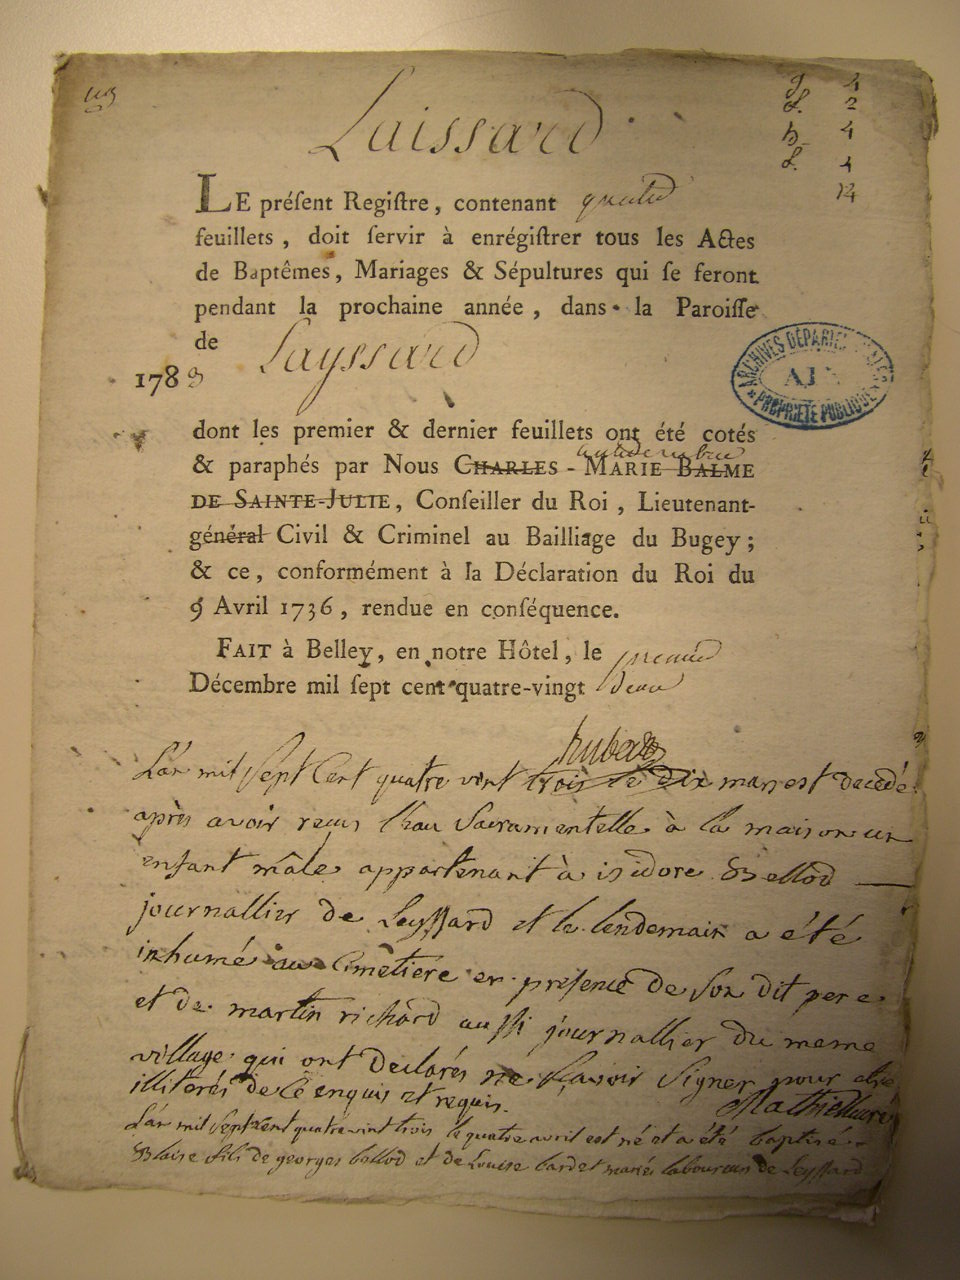 Laissard
4
2
4
4
14
LE préſent Regiſtre, contenant quatre
feuillets, doit ſervir à enrégiſtrer tous les Actes
de Baptêmes, Mariages & Sépultures qui ſe feront
pendant la prochaine année, dans la Paroiſſe
de Layssard
1783
ARCHIVES DÉPARTEMENTALES
AIN
PROPRIÉTÉ PUBLIQUE
dont les premier & dernier feuillets ont été cotés
& paraphés par Nous CHARLES-MARIE BALME
DE SAINTE-JULIE, Conſeiller du Roi, Lieutenant-
général Civil & Criminel au Bailliage du Bugey;
& ce, conformément à la Déclaration du Roi du
9 Avril 1736, rendue en conſéquence.
FAIT à Belley, en notre Hôtel, le premier
Décembre mil ſept cent quatre-vingt deux
L'an mil sept Cent quatre vint trois le dix mars est decedé
après avoir reçus l'eau Sacramentelle à la maison un
enfant mâle appartenant à isidore Bellod
journallier de Leyssard et le lendemain a été
inhumé au Cimetiere en presence de son dit pere
et de martin richard aussi journallier du meme
village qui ont declarés ne savoir signer pour etre
illiterés de Ce enquis et requis.
L'an mil sept Cent quatre vint trois le quatre avril est né et a été baptisé
Blaise fils de georges bellod et de Louise bardet mariés laboureurs de Leyssard